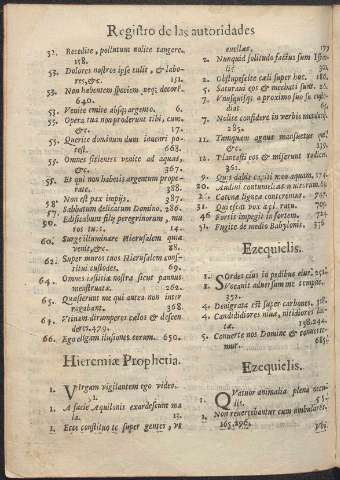 Registro de las autoridades
52. Recedite, pollutum nolite tangere.
158.
53. Dolores nostros ipse tulit, & labo-
res, &c. 151.
53. Non habentem speciem neq; decorē.
640.
53. Venite emite absq; argento. 6.
55. Opera tua non proderunt tibi, cum,
&c. 17.
55. Querite dominum dum inveniri po-
test. 663.
55. Omnes sitientes venite ad aquas,
&c. 367.
55. Et qui non habetis argentum prope-
rate. 388.
58. Non est pax impijs. 387.
57. Sabbatum delicatum Domino. 286.
60. Edificabunt filij peregrinorum, mu
ros tuos. 14.
60. Surge illuminare Hierusalem quia
venit, &c. 88.
62. Super muros tuos Hierusalem cons-
titui custodes. 69.
64. Omnes iustitiæ nostræ sicut pannus
menstruatæ 262.
65. Quæsierunt me qui antea non inter
rogabant. 368.
64. Vtinam dirumperes cælos & descen
deres. 479.
66. Ego eligam illusiones eorum. 650.
Hieremiæ Prophetia.
1. Virgam vigilantem ego video.
1. A facie Aquilonis exardescunt ma
la. 13.
1. Ecce constituo te super gentes, vt
evellas. 179
2. Nunquid solitudo factus sum Israe-
li? 30.
2. Obstupescite cæli super hoc. 186.
5. Saturavi eos & mechati sunt. 26.
7. Vnusquisq; a proximo suo se cus-
7. Nolite confidere in verbis mendacij.
285.
11. Tanquam agnus mansuetus qui
&c.
12. Plantasti eos & miserunt radice.
361.
9. Quis dabit capiti meo aquam. 174.
20.
2. Catena ligneas contrivisti. 767.
31. Qui est at pax ægi. ratu. 709.
46 Fortis impegit in fortem. 724.
51. Fugite de medio Babylonis. 376
Ezequielis.
1. Sordes eius in pedibus eius. 251.
1. Vocavit adversum me tempus.
372.
4. Denigrata est super carbones. 158.
4. Candidiores nive, nitidiores lac-
te. 158.224.
5. Converte nos Domine & converte-
mur. 685.
Ezequielis.
1. Quatuor animalia plena oculis.
1. Non revertebantur cum ambularent.
165.296.